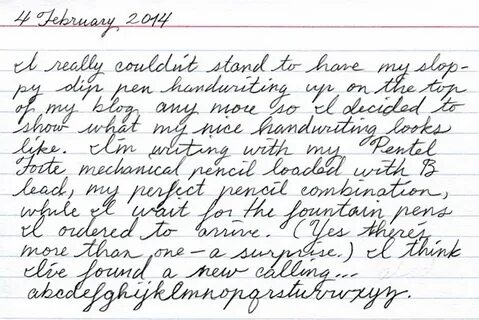 4 February, 2014
I really couldn't stand to have my slop-
py dip pen handwriting up on the top
of my blog any more so I decided to
show what my nice handwriting looks
like. I'm writing with my Pentel
Forte mechanical pencil loaded with B
lead, my perfect pencil combination,
while I wait for the fountain pens
I ordered to arrive. (Yes there's
more than one—a surprise.) I think
I've found a new calling...
abcdefghijklmnopqrstuvwxyz.